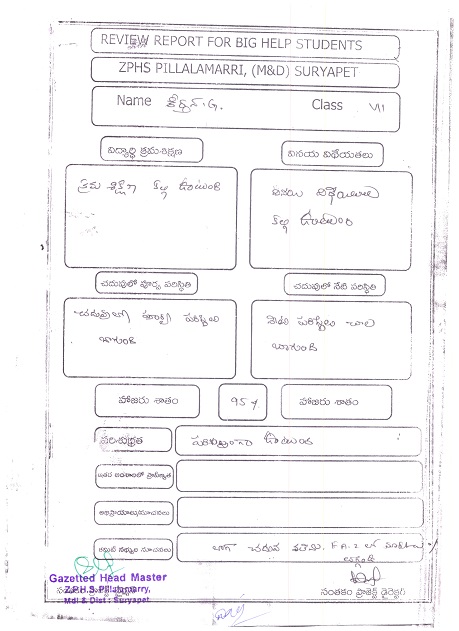 REVIEW REPORT FOR BIG HELP STUDENTS
ZPHS PILLALAMARRI, (M&D) SURYAPET
Name కీర్తన.G. Class VII
విద్యార్థి క్రమశిక్షణ
వినయ విధేయతలు
క్రమ శిక్షణ కల్గి ఉంటుంది
వినయ విధేయతలు
కల్గి ఉంటుంది
చదువులో పూర్వ పరిస్థితి
చదువులో నేటి పరిస్థితి
చదువులో పూర్వ పరిస్థితి
బాగుంది
నేటి పరిస్థితి చాల
బాగుంది
హాజరు శాతం
95%
హాజరు శాతం
పరిశుభ్రత
పరిశుభ్రంగా ఉంటుంది
ఇతర అంశాలలో ప్రావీణ్యత
అభిప్రాయాలు/సూచనలు
కమిటి సభ్యుల సూచనలు
బాగా చదువ వలెను. FA-2 లో
Gazetted Head Master
Z.P.H.S.Pillalamarry,
Mdl & Dist : Suryapet.
సంతకం ప్రాజెక్ట్ డైరెక్టర్